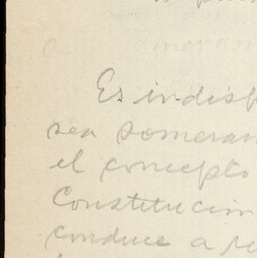 Es indisp
sea someram
el concepto
Constitucion
conduce a re